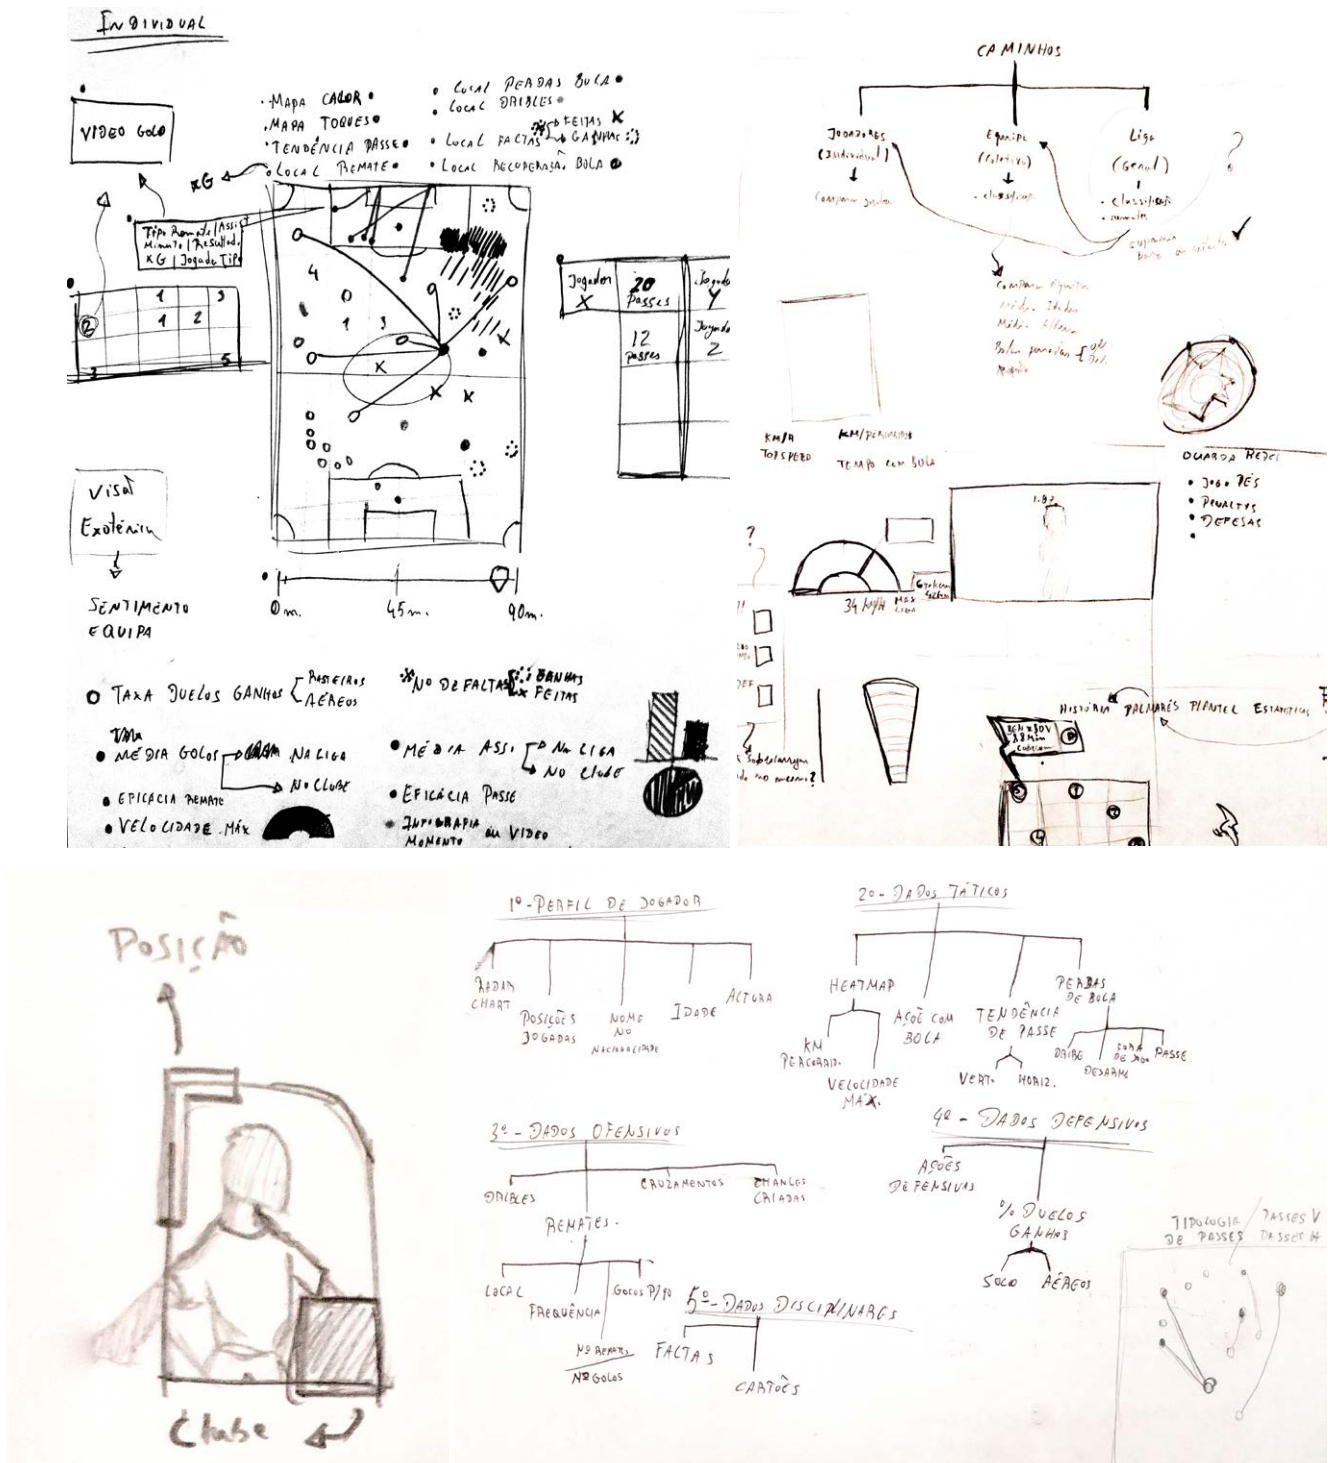 INDIVIDUAL
VIDEO GOLO
• MAPA CALOR •
• MAPA TOQUES •
• TENDÊNCIA PASSE •
• LOCAL REMATE •
xG
• LOCAL PERDAS BOLA •
• LOCAL DRIBLES •
• LOCAL FALTAS
FEITAS X
GANHAS
• LOCAL RECUPERAÇÃO BOLA
Tipo Remate | Assist
Minuto | Resultad.
xG | Jogada Tipo
1 3
2 1 2
3 5
4
1 3
Jogador X
20 Passes
Jogador Y
12 Passes
Jogador 2
Visã
Exotérica
SENTIMENTO
EQUIPA
0m. 45m. 90m.
TAXA DUELOS GANHOS
RASTEIROS
AÉREOS
Nº DE FALTAS
GANHAS
FEITAS
• MÉDIA GOLOS
NA LIGA
NO CLUBE
• MÉDIA ASSI.
NA LIGA
NO CLUBE
• EFICÁCIA REMATE
• EFICÁCIA PASSE
• VELOCIDADE MÁX
• INFOGRAFIA
MOMENTO OU VIDEO
CAMINHOS
JOGADORES
(Individual)
Comparar jogador
Equipa
(coletivo)
- classificaçã
Liga
(Geral)
- classificaçã
?
Comparar Equipas
Média Idades
Média Altura
KM/H
TOPSPEED
KM/PERCORRIDOS
TEMPO COM BOLA
GUARDA REDES
• JOGO PÉS
• PENALTYS
• DEFESAS
•
1.87
?
34 KM/H
MAX
LIGA
DEF
HISTÓRIA PALMARÉS PLANTEL ESTATÍSTICAS
POSIÇÃO
Clube
1º - PERFIL DE JOGADOR
RADAR
CHART
POSIÇÕES
JOGADAS
NOME
NO
NACIONALIDADE
IDADE
ALTURA
2º - DADOS TÁTICOS
HEATMAP
KM
PERCORRID.
VELOCIDADE
MÁX.
AÇÕE COM
BOLA
TENDÊNCIA
DE PASSE
VERT. HORIZ.
PERDAS
DE BOLA
DRIBE
DESARME
PASSE
3º - DADOS OFENSIVOS
DRIBLES
REMATES.
CRUZAMENTOS
CHANCES
CRIADAS
LOCAL
FREQUÊNCIA
Nº REMATES
Nº GOLOS
GOLOS P/90
4º - DADOS DEFENSIVOS
AÇÕES
DEFENSIVAS
% DUELOS
GANHOS
SOLO AÉREOS
5º - DADOS DISCIPLINARES
FALTAS
CARTÕES
TIPOLOGIA
DE PASSES
PASSES V
PASSES H